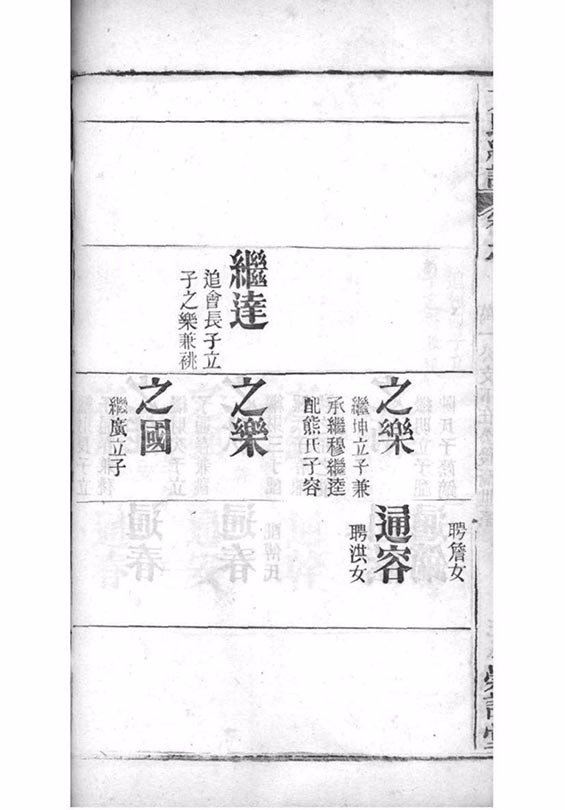 繼達
追會長子立
子之樂兼祧
之樂
繼坤立子兼
承繼穆繼逵
配熊氏子容
之樂
之國
繼廣立子
聘詹女
通容
聘洪女